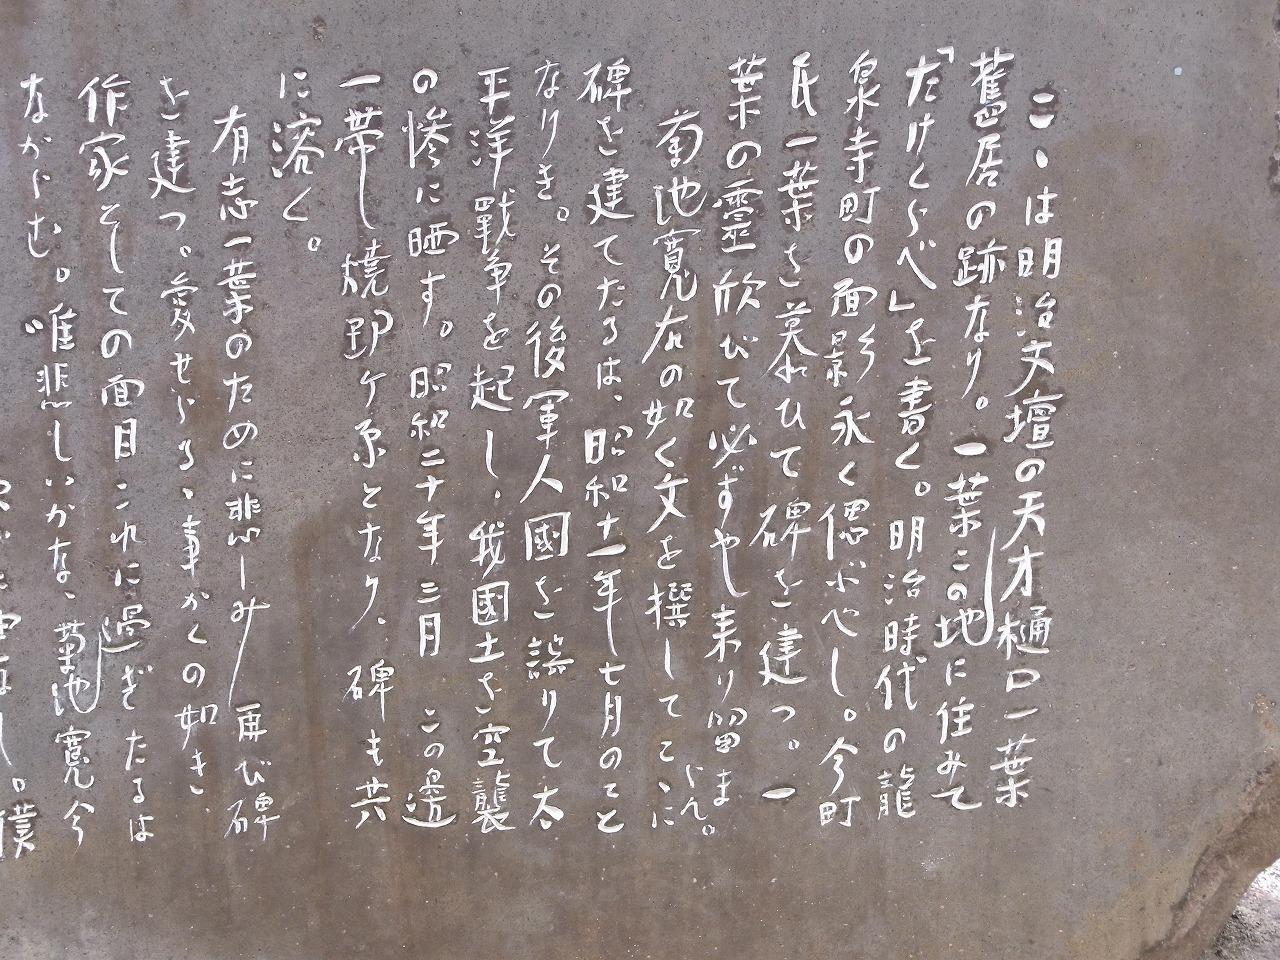 こゝは明治文壇の天才樋口一葉
舊居の跡なり。一葉この地に住みて
「たけくらべ」を書く。明治時代の龍
泉寺町の面影永く偲ぶべし。今町
民一葉を慕ひて碑を建つ。一
葉の靈欣びて必ずや来り留まらん。
菊池寛右の如く文を撰してこゝに
碑を建てたるは、昭和十一年七月のこと
なりき。その後軍人國を誤りて太
平洋戰争を起し、我國土を空襲
の惨に晒す。昭和二十年三月この邊
一帯焼野ケ原となり、碑も共
に溶く。
有志一葉のために悲しみ再び碑
を建つ。愛せらるゝ事かくの如き、
作家そしての面目これに過ぎたるは
ながらむ。唯悲しいかな、菊池寛今
し。僕